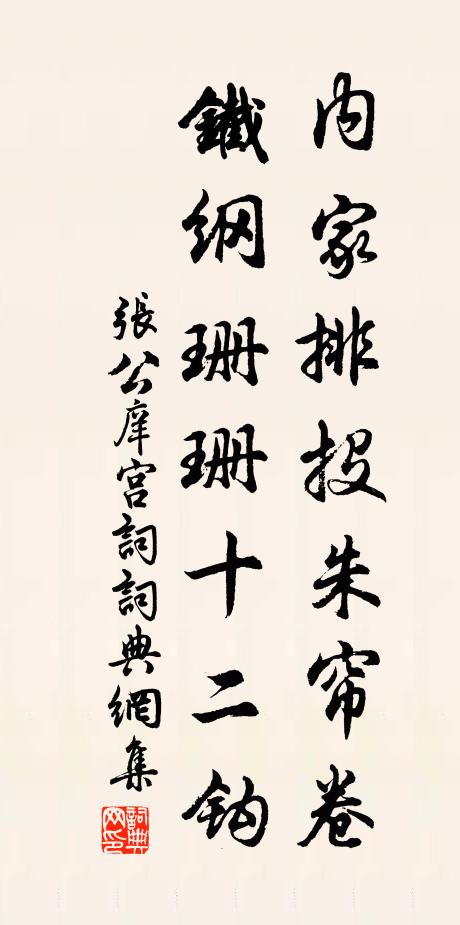 内家排投朱帘卷
鐵纲珊珊十二钩
張公庠宫詞詞典網集
詞典
网印